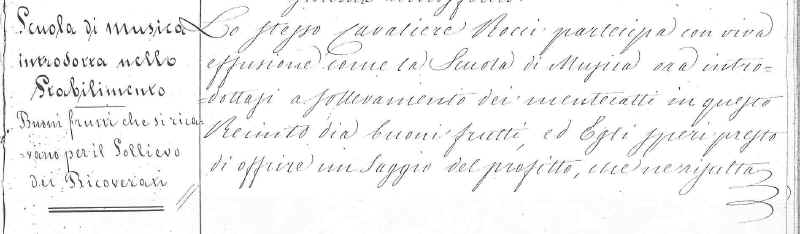 Scuola di musica
introdotta nello
Stabilimento
Buoni frutti che si rica-
vano per il Sollievo
dei Ricoverati
Lo stesso Cavaliere Rocci partecipa con viva
effusione come la Scuola di Musica ora intro-
dottasi a sollevamento dei mentecatti in questo
Recinto dia buoni frutti, ed Egli speri presto
di offrire un Saggio del profitto, che ne risulta